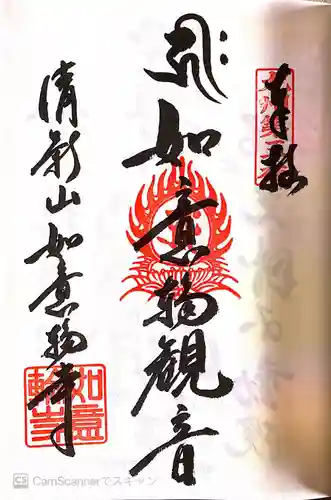 奉拝
如意輪観音
清影山如意輪寺
如意
輪寺
CS CamScannerでスキャン